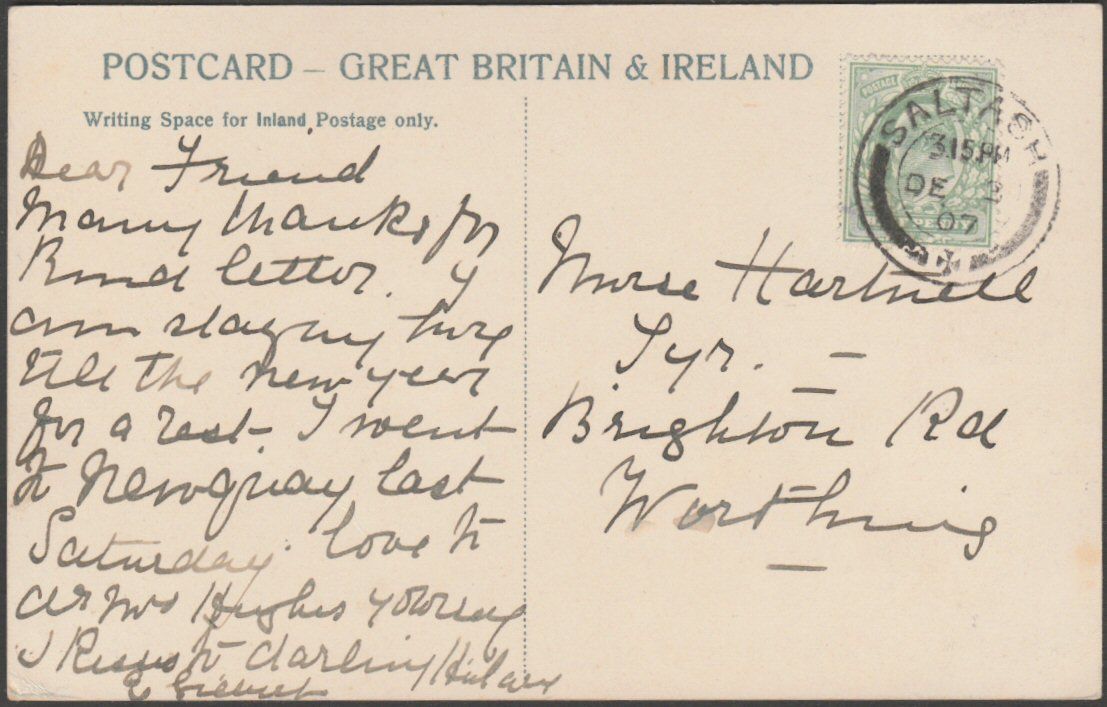 POSTCARD – GREAT BRITAIN & IRELAND
Writing Space for Inland Postage only.
Dear Friend
Many thanks for
kind letter. I
am staying here
till the new year
for a rest I went
to Newquay last
Saturday. love to
Mrs Hughes
to darling
SALTASH
3 15 PM
DE 2
07
POSTAGE
PENNY
Hartnell
Tyr. –
Brighton Rd
Worthing